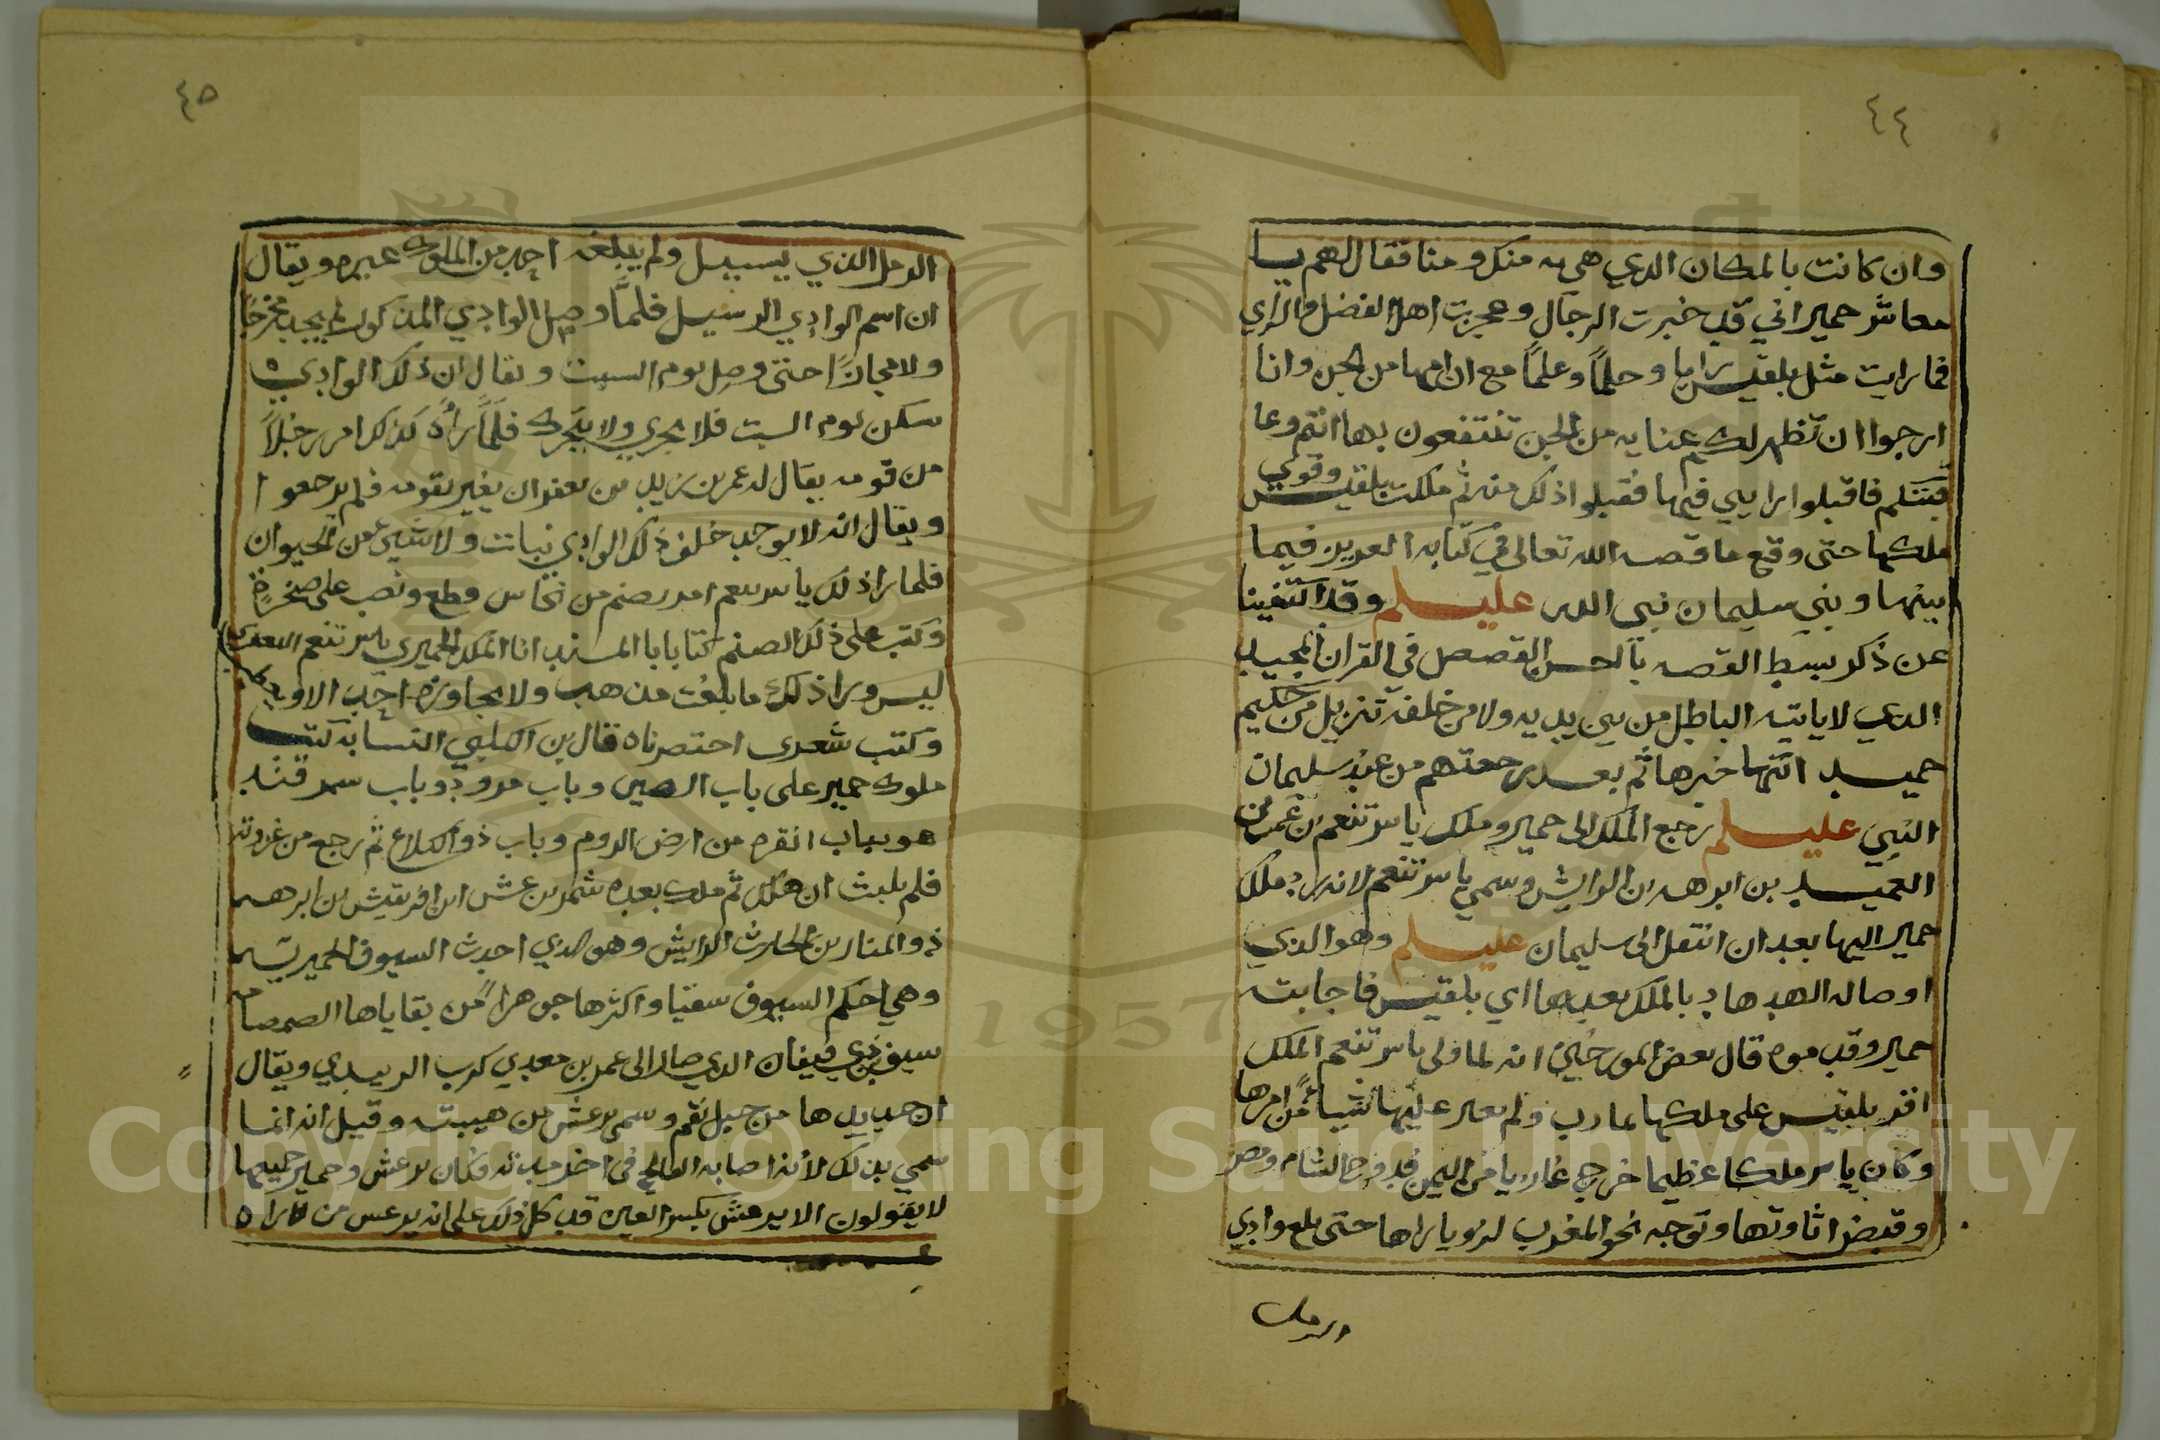 ٤٤
وان كانت بالمكان الذي هي به منك ومنا فقال لهم يا
معاشر حمير اني قد خبرت الرجال وعجزت اهل الفضل والراي
فما رايت مثل بلقيس رايا وحلماً وعلماً مع ان امها من الجن وانا
ارجوا ان تظهر لكم عنايه من الجن تنتفعون بها انتم وعا
قبتكم فاقبلوا رايي فيها فقبلوا ذلك منه ثم ملكت بلقيس وقوي
ملكها حتى وقع ما قصه الله تعالى في كتابه العزيز فيما
بينها وبني سليمان نبي الله عليسلم وقد اكتفينا
عن ذكر بسط القصه باحسن القصص في القران المجيد
الذي لا ياتيه الباطل من بين يديه ولا من خلفه تنزيل من حكيم
حميد انتها خبرها ثم بعد رجعتهم من عند سليمان
النبي عليسلم رجع الملك الى حمير وملك ياسر تنعم بن عمر بن
العميد بن ابرهه بن الرايش وسمي ياسر تنعم لانه رد ملك
حمير اليها بعد ان انتقل الى سليمان عليسلم وهو الذي
اوصا له الهدهاد بالملك بعدها اي بلقيس فاجابته
حمير وقدموه قال بعض المورخين انه لما ولى ياسر تنعم الملك
اقر بلقيس على ملكها بمارب ولم يعير عليها شيأ من امرها
وكان ياسر ملكا عظيما خرج غازيا من اليمن فدوخ الشام ومصر
وقبض اثاوتها وتوجه نحو المغرب لرويا راها حتى بلغ وادي
الرمل
٤٥
الرمل الذي يسيل ولم يبلغه احد من الملوك غيره ويقال
ان اسم الوادي الرسيل فلمَّا وصل الوادي المذكور لم يجد مخرجًا
ولا مجازًا حتى وصل يوم السبت ويقال ان ذلك الوادي
سكن يوم السبت فلا يجري ولا يتحرك فلمَّا راه كذلك امر رجلاً
من قومه يقال له عمر بن زيد بن يعفر ان يغير بقومه فلم يرجعوا
ويقال انه لا يوجد خلف ذلك الوادي نبات ولا شي من الحيوان
فلما را ذلك ياسر تنعم امر بصنم من نحاس وطع ونصب على صخرة
وكتب على ذلك الصنم كتابا بالمسند انا الملك الحميري ياسر تنعم اليعفري
ليس ورا ذلك ما بلغت مذهب ولا يجاوزه احد الا ويهلك
وكتب شعرى احتصرناه قال بن الكلبي النسابه كتب
ملوك حمير على باب الصين وباب مرو وباب سمرقند
هو بباب انقره من ارض الروم وباب ذو الكلاع ثم رجع من غزوته
فلم يلبث ان هلك ثم ملك بعده شمر بن عش ابن افريقيش بن ابرهه
ذو المنار بن الحارث الرايش وهو الذي احدث السيوف الحميريه
وهي احكم السيوف سقيا واكثرها جوهرا من بقاياها الصمصامه
سيف بن ذي قيفان الذي صار الى عمر بن معدي كرب الزبيدي ويقال
ان حديدها من جبل نقم وسمي يرعش من هيبته وقيل انه انما
سمي بذلك لأنه اصابه الفالج في اخر مدته فكان يرعش وحمير جميعها
لا يقولون الا يرعش بكسر العين قد كل ذلك على انه يرعس من راه